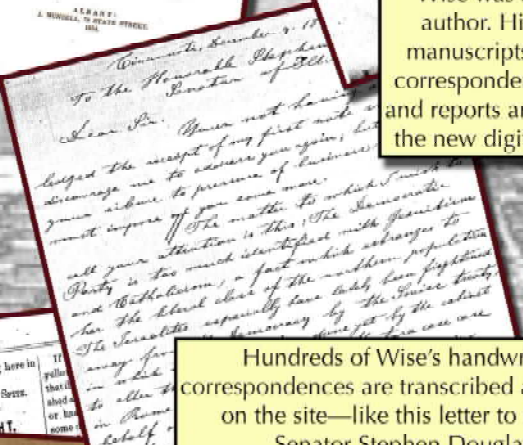 ALBANY:
J. MUNSELL, 78 STATE STREET.
Wise was a
author. Hi
manuscripts
corresponde
and reports a
the new digit
Cincinnati, December 4, 18
To the Honorable Stephen
Senator of Ill.
Dear Sir. Your not having
ledged the receipt of my first note
discourage me to address you again; but
your silence to pressure of business
most impose of you some more.
The matter to which I wish to
call your attention is this; The Democratic
Party is too much identified with Jesuitism
and Catholicism, a fact which estranges to
her the liberal class of the northern population
The Israelites especially have lately been frightened
away from Democracy by the Swiss treaty,
in which
by the cabinet
to allow
in Rome
behalf of
here in
Hundreds of Wise's handwr
correspondences are transcribed a
on the site—like this letter to
Senator Stephen Dougla